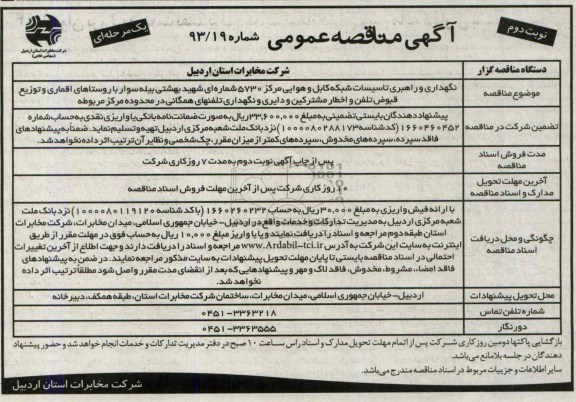 نوبت دوم
آگهی مناقصه عمومی شماره ۹۳/۱۹
یک مرحله‌ای
شرکت مخابرات استان اردبیل
(سهامی خاص)
دستگاه مناقصه گزار
شرکت مخابرات استان اردبیل
موضوع مناقصه
نگهداری و راهبری تاسیسات شبکه کابل و هوایی مرکز ۵۷۳۰ شماره‌ای شهید بهشتی بیله سوار با روستاهای اقماری و توزیع
قبوض تلفن و اخطار مشترکین و دایری و نگهداری تلفنهای همگانی در محدوده مرکز مربوطه
تضمین شرکت در مناقصه
پیشنهاد دهندگان بایستی تضمینی به مبلغ ۳۳,۶۰۰,۰۰۰ ریال به صورت ضمانت نامه بانکی یا واریزی نقدی به حساب شماره
۱۶۶۰۴۶۰۴۵۲ (کد شناسه ۱۰۰۰۰۸۰۲۸۸۱۷۳) نزد بانک ملت شعبه مرکزی اردبیل تهیه و تسلیم نماید. ضمنا به پیشنهادهای
فاقد سپرده، سپرده‌های مخدوش، سپرده‌های کمتر از میزان مقرر، چک شخصی و نظایر آن ترتیب اثر داده نخواهد شد.
مدت فروش اسناد
مناقصه
پس از چاپ آگهی نوبت دوم به مدت ۷ روز کاری شرکت
آخرین مهلت تحویل
مدارک و اسناد مناقصه
۱۰ روز کاری شرکت پس از آخرین مهلت فروش اسناد مناقصه
چگونگی و محل دریافت
اسناد مناقصه
با ارائه فیش واریزی به مبلغ ۳۰,۰۰۰ ریال به حساب ۱۶۶۰۲۶۰۲۳۲ (با کد شناسه ۱۰۰۰۰۸۰۱۱۹۱۲۰) نزد بانک ملت
شعبه مرکزی اردبیل به مدیریت تدارکات و خدمات واقع در اردبیل - خیابان جمهوری اسلامی، میدان مخابرات، شرکت مخابرات
استان طبقه دوم مراجعه و اسناد را دریافت نمایند و یا با واریز مبلغ ۱۰,۰۰۰ ریال به حساب فوق در مهلت مقرر از طریق
اینترنت به سایت این شرکت به آدرس www.Ardabil-tci.ir مراجعه و اسناد را دریافت دارند و جهت اطلاع از آخرین تغییرات
احتمالی در اسناد مناقصه بایستی تا پایان مهلت تحویل پیشنهادات به سایت مذکور مراجعه نمایند. در ضمن به پیشنهادهای
فاقد امضاء، مشروط، مخدوش، فاقد لاک و مهر و پیشنهادهایی که بعد از انقضای مدت مقرر واصل شود مطلقا ترتیب اثر داده
نخواهد شد.
محل تحویل پیشنهادات
اردبیل - خیابان جمهوری اسلامی، میدان مخابرات، ساختمان شرکت مخابرات استان، طبقه همکف، دبیرخانه
شماره تلفن تماس
۰۴۵۱-۳۳۶۳۲۱۸
دورنگار
۰۴۵۱-۳۳۶۳۵۵۵
بازگشایی پاکتها دومین روز کاری شرکت پس از اتمام مهلت تحویل مدارک و اسناد راس ساعت ۱۰ صبح در دفتر مدیریت تدارکات و خدمات انجام خواهد شد و حضور پیشنهاد
دهندگان در جلسه بلامانع می‌باشد.
سایر اطلاعات و جزییات مربوط در اسناد مناقصه مندرج می‌باشد.
شرکت مخابرات استان اردبیل